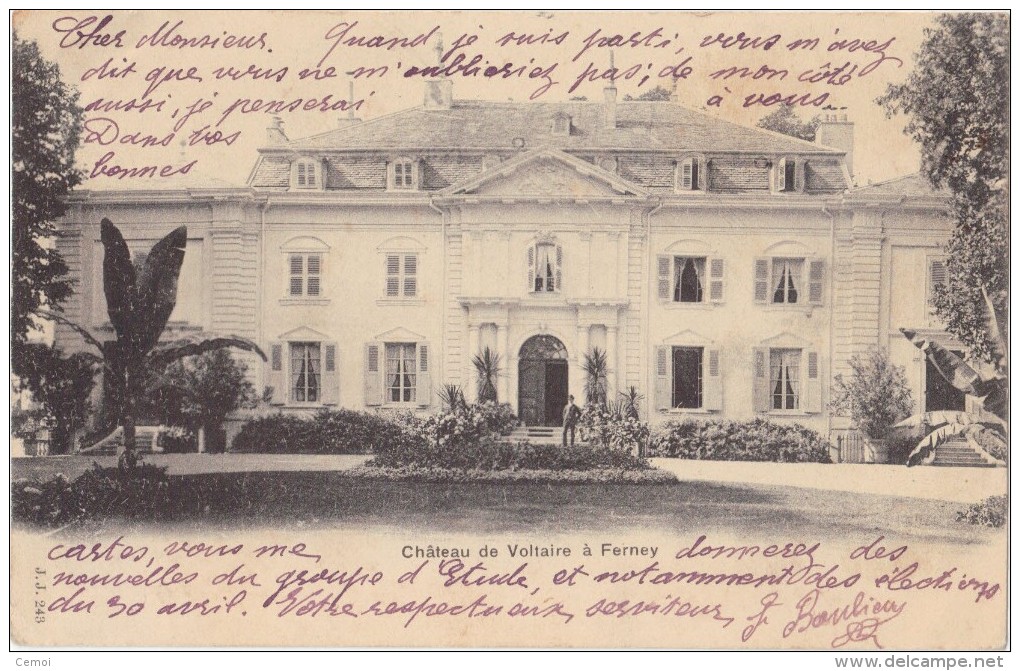 Cher Monsieur. Quand je suis parti, vous m'avez
dit que vous ne m'oublieriez pas; de mon côté
aussi, je penserai à vous...
Dans vos
bonnes
Château de Voltaire à Ferney
cartes, vous me donnerez des
nouvelles du groupe d'Etude, et notamment des élections
du 30 avril. Votre respectueux serviteur,
J.J. 243
© Cemoi
www.delcampe.net